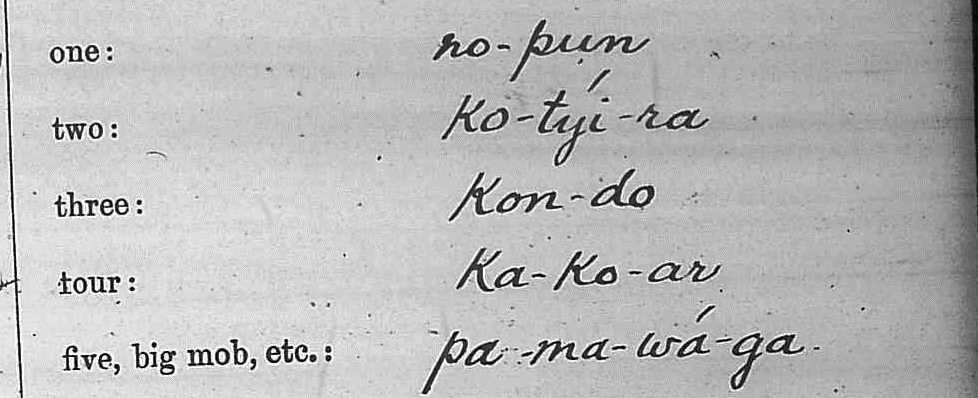 one: no-pun
two: Ko-tyí-ra
three: Kon-do
four: Ka-Ko-ar
five, big mob, etc.: pa-ma-wá-ga.